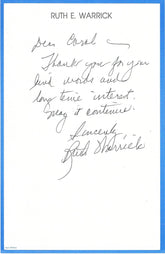 RUTH E. WARRICK
Dear Carol –
Thank you for your
kind words and
long time interest.
May it continue.
Sincerely
Ruth Warrick